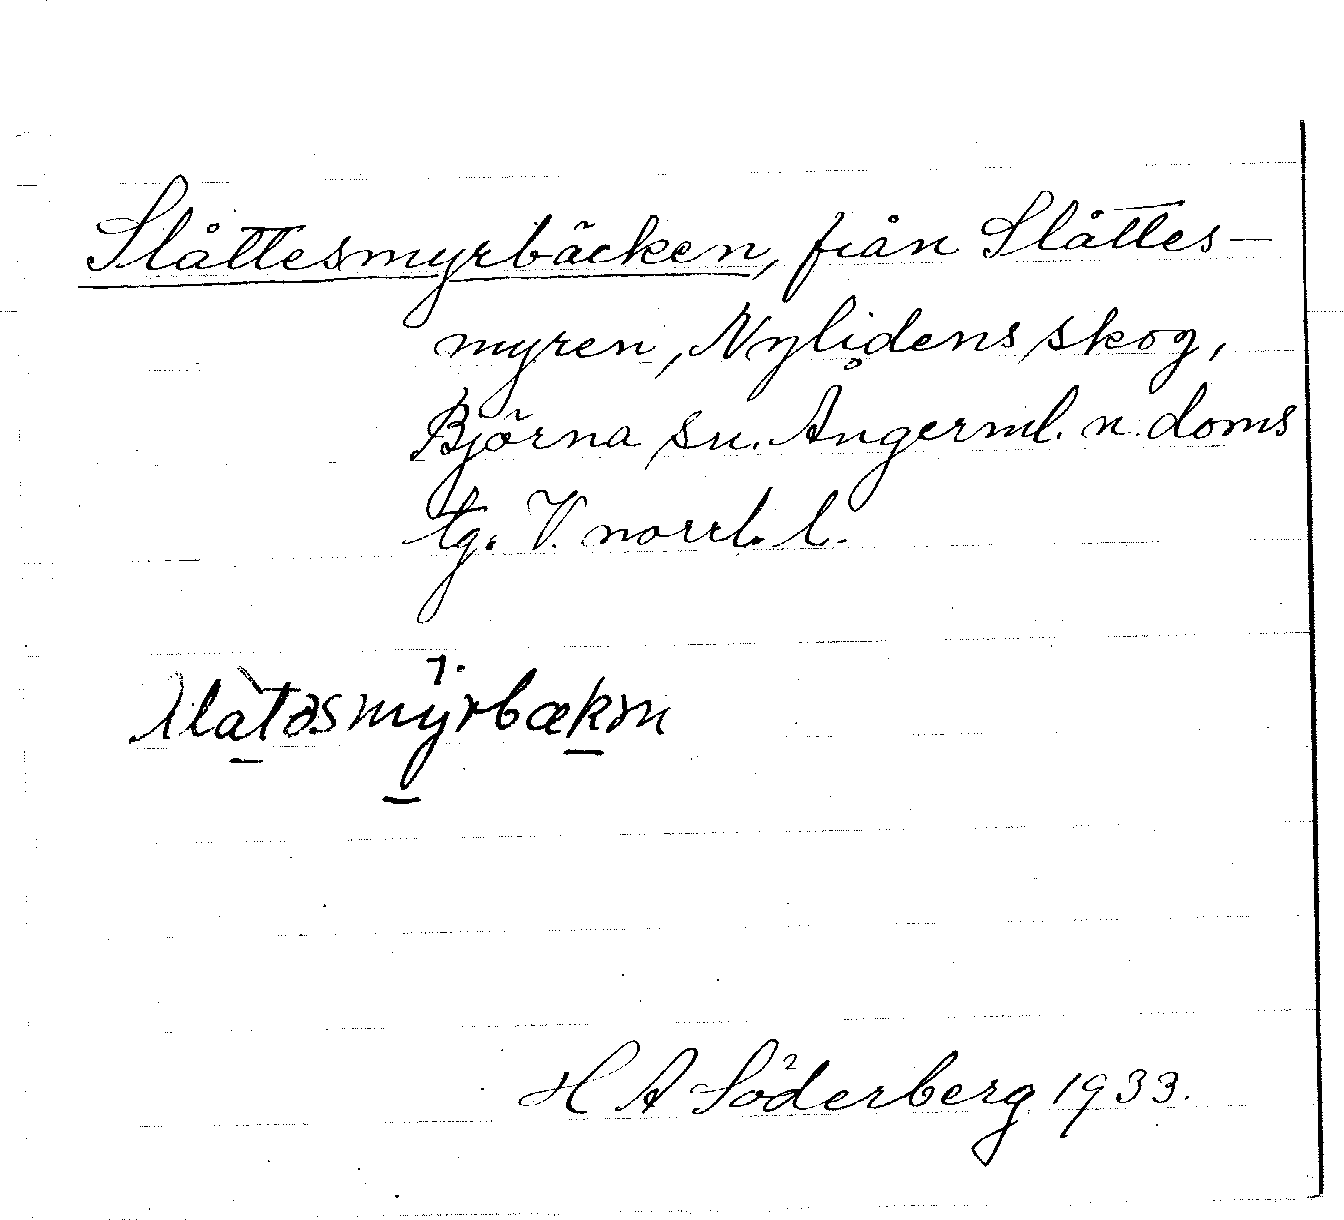 Slåttesmyrbäcken, från Slåttes-
myren, Nylidens skog,
Björna sn. Ångerml. n. doms
tg. V. norrl. l.
H A Söderberg 1933.